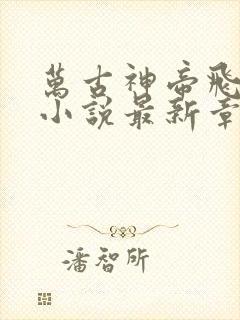 萬古神帝飛
小說最新章
潘智所